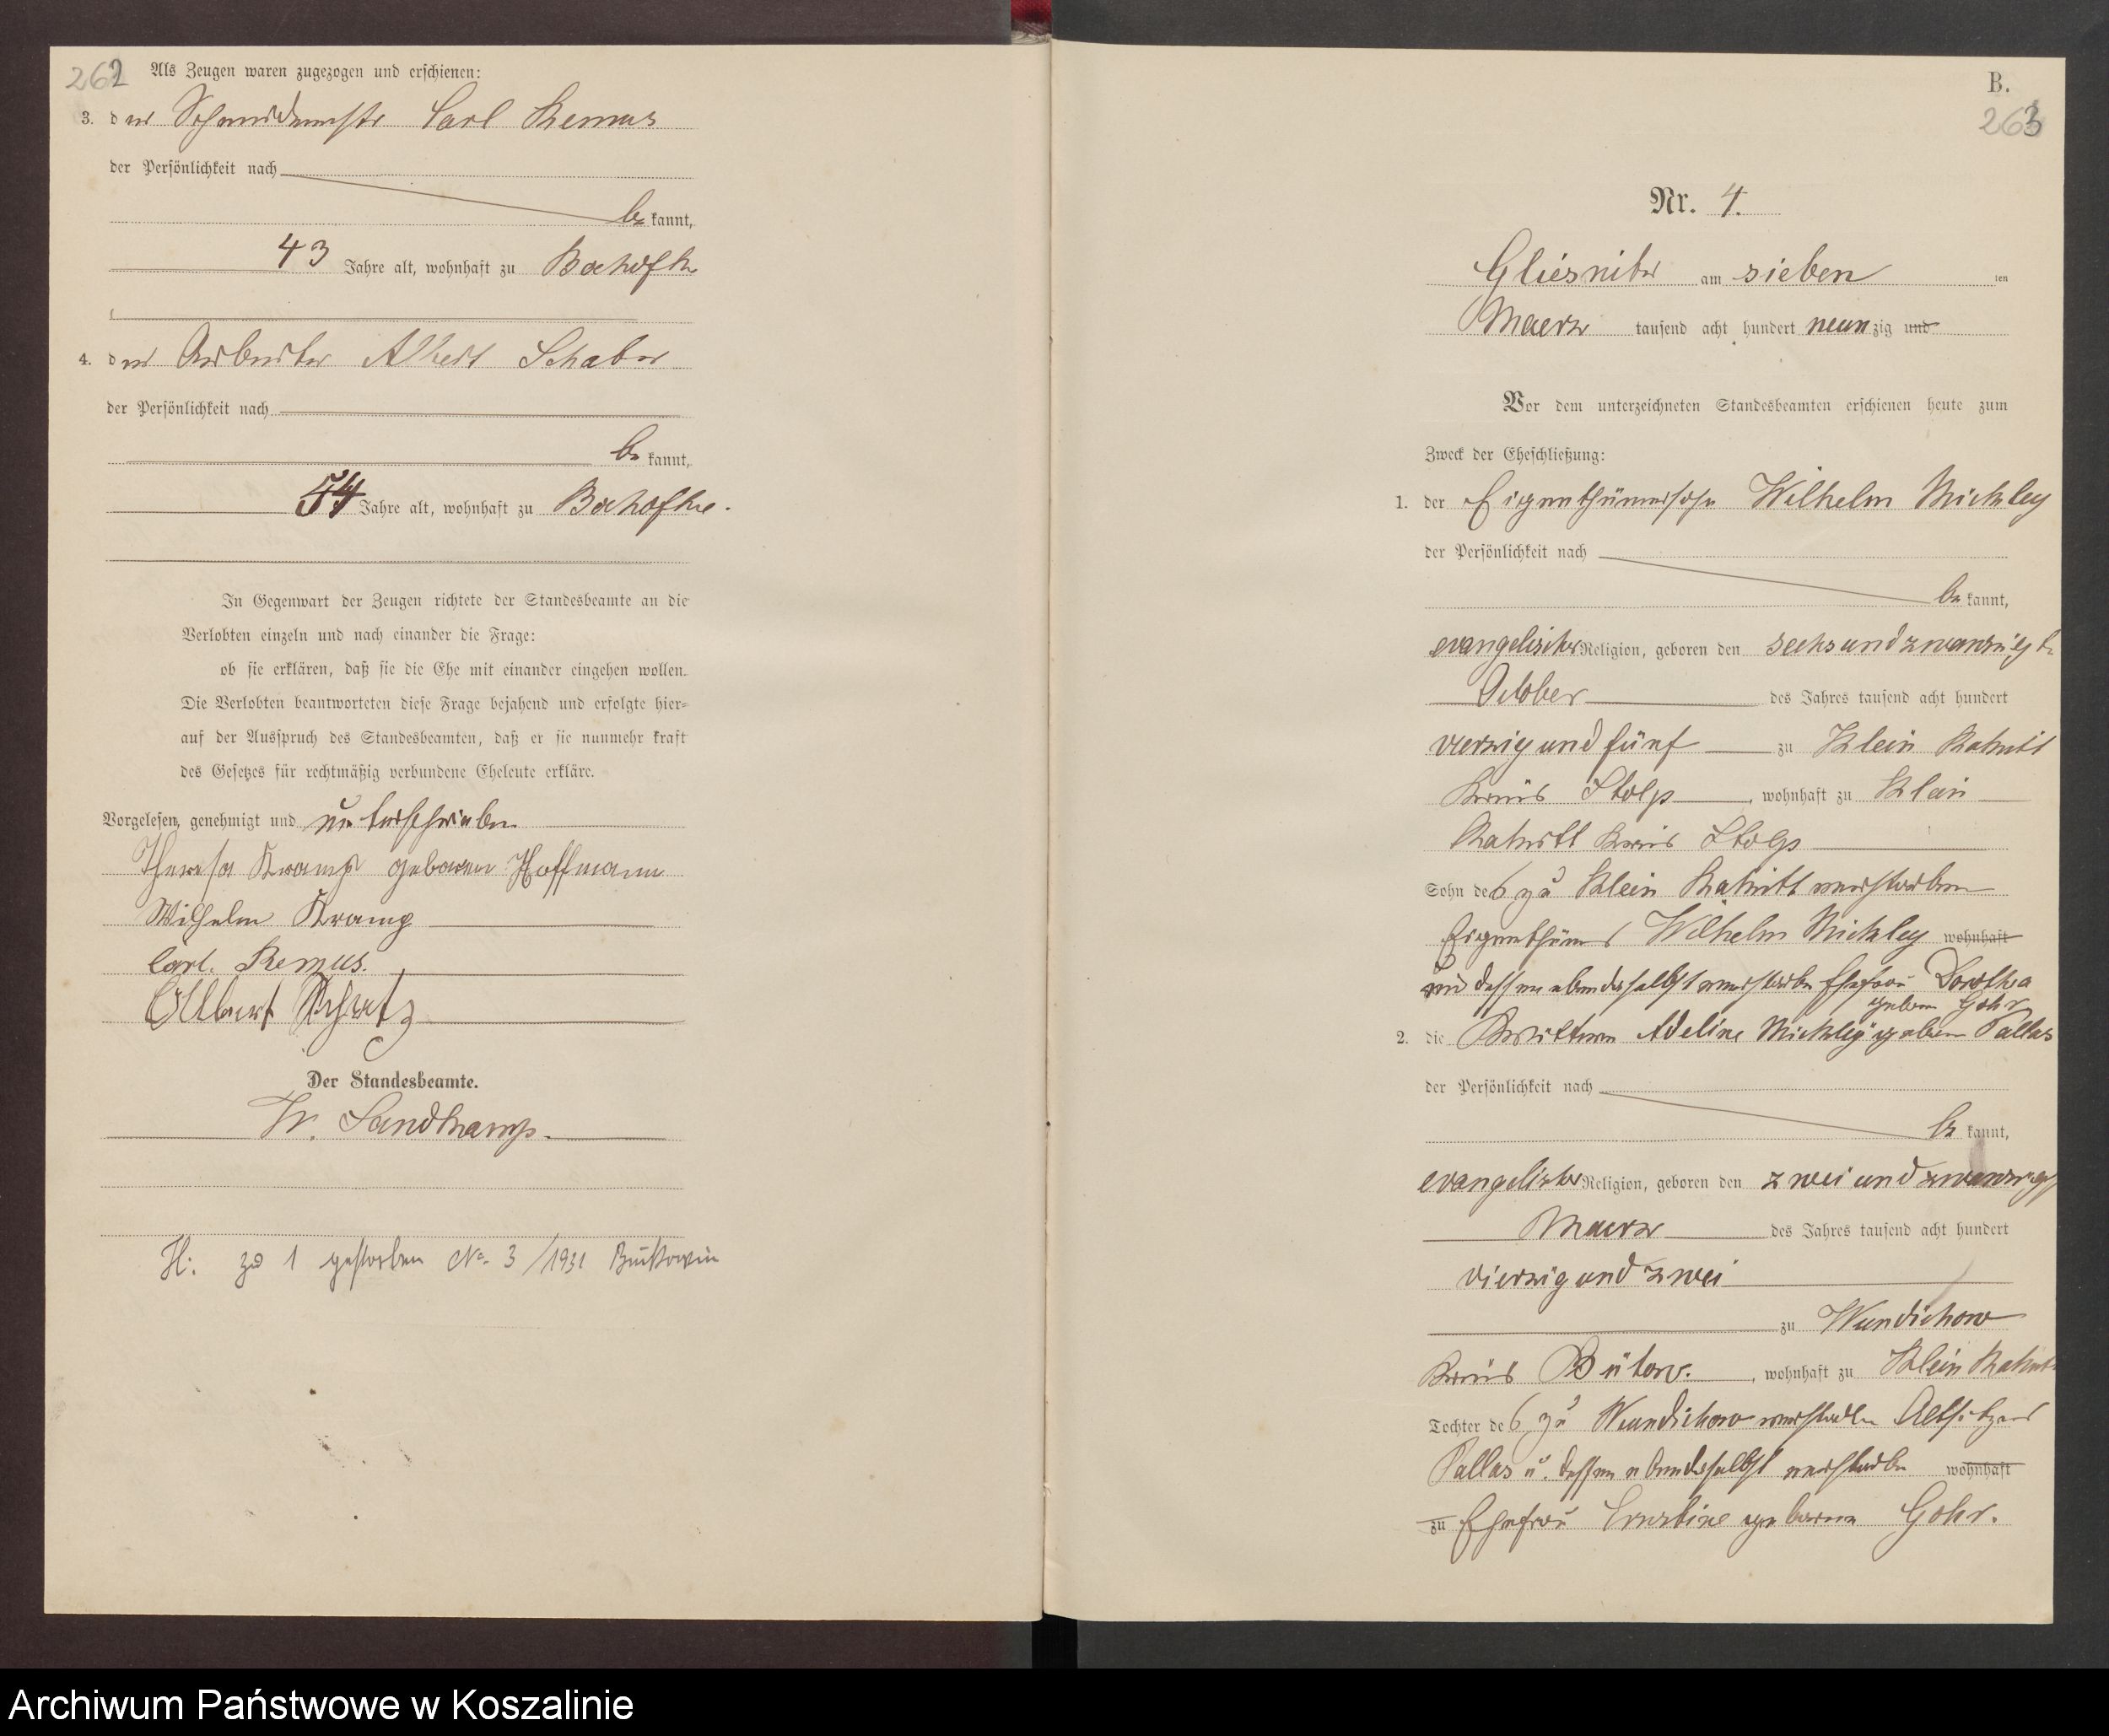 262
Als Zeugen waren zugezogen und erschienen:
3. der Schmiedemstr Carl Remus
der Persönlichkeit nach
be kannt,
43 Jahre alt, wohnhaft zu
4. der Arbeiter Albert
der Persönlichkeit nach
be kannt,
54 Jahre alt, wohnhaft zu
In Gegenwart der Zeugen richtete der Standesbeamte an die
Verlobten einzeln und nach einander die Frage:
ob sie erklären, daß sie die Ehe mit einander eingehen wollen.
Die Verlobten beantworteten diese Frage bejahend und erfolgte hier-
auf der Ausspruch des Standesbeamten, daß er sie nunmehr kraft
des Gesetzes für rechtmäßig verbundene Eheleute erkläre.
Vorgelesen, genehmigt und unterschrieben
Theresa Kramp geboren Hoffmann
Wilhelm Kramp
Carl. Remus.
Albert
Der Standesbeamte.
W. Sandkamp.
H: zu 1 gestorben No. 3/1931 Buckowin
B.
263
Nr. 4.
Gliesnitz am sieben ten
Maerz tausend acht hundert neun zig und
Vor dem unterzeichneten Standesbeamten erschienen heute zum
Zweck der Eheschließung:
1. der Eigenthümersohn Wilhelm Mickley
der Persönlichkeit nach
be kannt,
evangelischer Religion, geboren den sechsundzwanzigsten
October des Jahres tausend acht hundert
vierzig und fünf zu Klein Rakitt
Kreis Stolp, wohnhaft zu Klein
Rakitt Kreis Stolp
Sohn des zu Klein Rakitt verstorbenen
Eigenthümers Wilhelm Mickley wohnhaft
und dessen ebendaselbst verstorbenen Ehefrau Dorothea
geboren Gohr
2. die Wittwe Adeline Mickley geboren Pallas
der Persönlichkeit nach
be kannt,
evangelischer Religion, geboren den zwei und zwanzigsten
Maerz des Jahres tausend acht hundert
vierzig und zwei
zu Wundichow
Kreis Bütow., wohnhaft zu Klein Rakitt
Tochter des zu Wundichow verstorbenen Altsitzers
Pallas u. dessen ebendaselbst verstorbenen wohnhaft
zu Ehefrau Ernstine geborene Gohr.
Archiwum Państwowe w Koszalinie